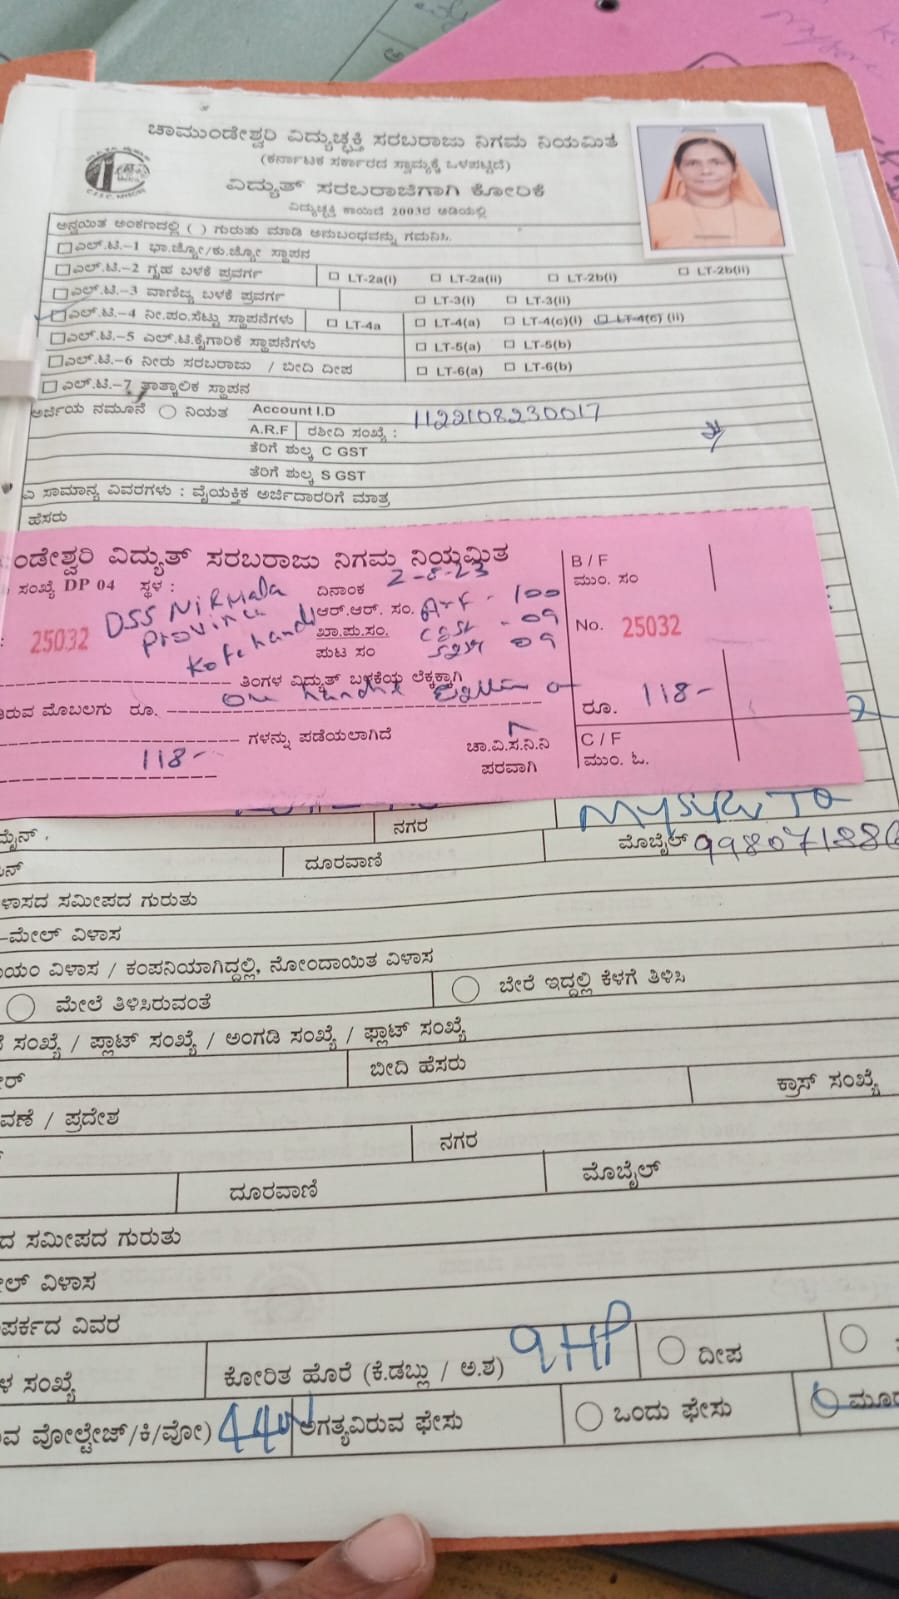 ಚಾಮುಂಡೇಶ್ವರಿ ವಿದ್ಯುಚ್ಛಕ್ತಿ ಸರಬರಾಜು ನಿಗಮ ನಿಯಮಿತ
(ಕರ್ನಾಟಕ ಸರ್ಕಾರದ ಸ್ವಾಮ್ಯಕ್ಕೆ ಒಳಪಟ್ಟಿದೆ)
ವಿದ್ಯುತ್ ಸರಬರಾಜಿಗಾಗಿ ಕೋರಿಕೆ
ವಿದ್ಯುಚ್ಛಕ್ತಿ ಕಾಯಿದೆ 2003ರ ಅಡಿಯಲ್ಲಿ
ಅನ್ವಯಿತ ಅಂಕಣದಲ್ಲಿ ( ) ಗುರುತು ಮಾಡಿ ಅನುಬಂಧವನ್ನು ಗಮನಿಸಿ.
ಎಲ್.ಟಿ.–1 ಭಾ.ಜ್ಯೋ/ಕು.ಜ್ಯೋ ಸ್ಥಾಪನ
ಎಲ್.ಟಿ.–2 ಗೃಹ ಬಳಕೆ ಪ್ರವರ್ಗ LT-2a(i) LT-2a(ii) LT-2b(i) LT-2b(ii)
ಎಲ್.ಟಿ.–3 ವಾಣಿಜ್ಯ ಬಳಕೆ ಪ್ರವರ್ಗ LT-3(i) LT-3(ii)
ಎಲ್.ಟಿ.–4 ನೀ.ಪಂ.ಸೆಟ್ಟು ಸ್ಥಾಪನೆಗಳು LT-4a LT-4(a) LT-4(c)(i) LT-4(c) (ii)
ಎಲ್.ಟಿ.–5 ಎಲ್.ಟಿ.ಕೈಗಾರಿಕೆ ಸ್ಥಾಪನೆಗಳು LT-5(a) LT-5(b)
ಎಲ್.ಟಿ.–6 ನೀರು ಸರಬರಾಜು / ಬೀದಿ ದೀಪ LT-6(a) LT-6(b)
ಎಲ್.ಟಿ.–7 ತಾತ್ಕಾಲಿಕ ಸ್ಥಾಪನ
ಅರ್ಜಿಯ ನಮೂನೆ ನಿಯತ Account I.D 1122108230017
A.R.F ರಶೀದಿ ಸಂಖ್ಯೆ :
ತೆರಿಗೆ ಶುಲ್ಕ C GST
ತೆರಿಗೆ ಶುಲ್ಕ S GST
ಎ ಸಾಮಾನ್ಯ ವಿವರಗಳು : ವೈಯಕ್ತಿಕ ಅರ್ಜಿದಾರರಿಗೆ ಮಾತ್ರ
ಹೆಸರು
ಂಡೇಶ್ವರಿ ವಿದ್ಯುತ್ ಸರಬರಾಜು ನಿಗಮ ನಿಯಮಿತ
ಸಂಖ್ಯೆ DP 04 ಸ್ಥಳ : DSS Nirmala ದಿನಾಂಕ 2-8-23
25032 Province ಆರ್.ಆರ್. ಸಂ. ARF - 100
Kotehandi ಖಾ.ಪು.ಸಂ. CGST - 09
ಪುಟ ಸಂ SGST 09
ತಿಂಗಳ ವಿದ್ಯುತ್ ಬಳಕೆಯ ಲೆಕ್ಕಕ್ಕಾಗಿ
ಮೊಬಲಗು ರೂ.
ಗಳನ್ನು ಪಡೆಯಲಾಗಿದೆ
118-
ಚಾ.ವಿ.ಸ.ನಿ.ನಿ
ಪರವಾಗಿ
B / F
ಮುಂ. ಸಂ
No. 25032
ರೂ. 118-
C / F
ಮುಂ. ಓ.
ನಗರ MYSURU TQ
ದೂರವಾಣಿ ಮೊಬೈಲ್ 998071886
ಳಾಸದ ಸಮೀಪದ ಗುರುತು
–ಮೇಲ್ ವಿಳಾಸ
ಯಂ ವಿಳಾಸ / ಕಂಪನಿಯಾಗಿದ್ದಲ್ಲಿ, ನೋಂದಾಯಿತ ವಿಳಾಸ
ಮೇಲೆ ತಿಳಿಸಿರುವಂತೆ ಬೇರೆ ಇದ್ದಲ್ಲಿ ಕೆಳಗೆ ತಿಳಿಸಿ
ಸಂಖ್ಯೆ / ಪ್ಲಾಟ್ ಸಂಖ್ಯೆ / ಅಂಗಡಿ ಸಂಖ್ಯೆ / ಫ್ಲಾಟ್ ಸಂಖ್ಯೆ
ಬೀದಿ ಹೆಸರು
ವಣೆ / ಪ್ರದೇಶ ಕ್ರಾಸ್ ಸಂಖ್ಯೆ
ನಗರ
ದೂರವಾಣಿ ಮೊಬೈಲ್
ದ ಸಮೀಪದ ಗುರುತು
ಲ್ ವಿಳಾಸ
ಪರ್ಕದ ವಿವರ
ಳ ಸಂಖ್ಯೆ ಕೋರಿತ ಹೊರೆ (ಕಿ.ಡಬ್ಲು / ಅ.ಶ) 9HP ದೀಪ
ವ ವೋಲ್ಟೇಜ್/ಕಿ/ವೋ) ಅಗತ್ಯವಿರುವ ಫೇಸು ಒಂದು ಫೇಸು ಮೂರ